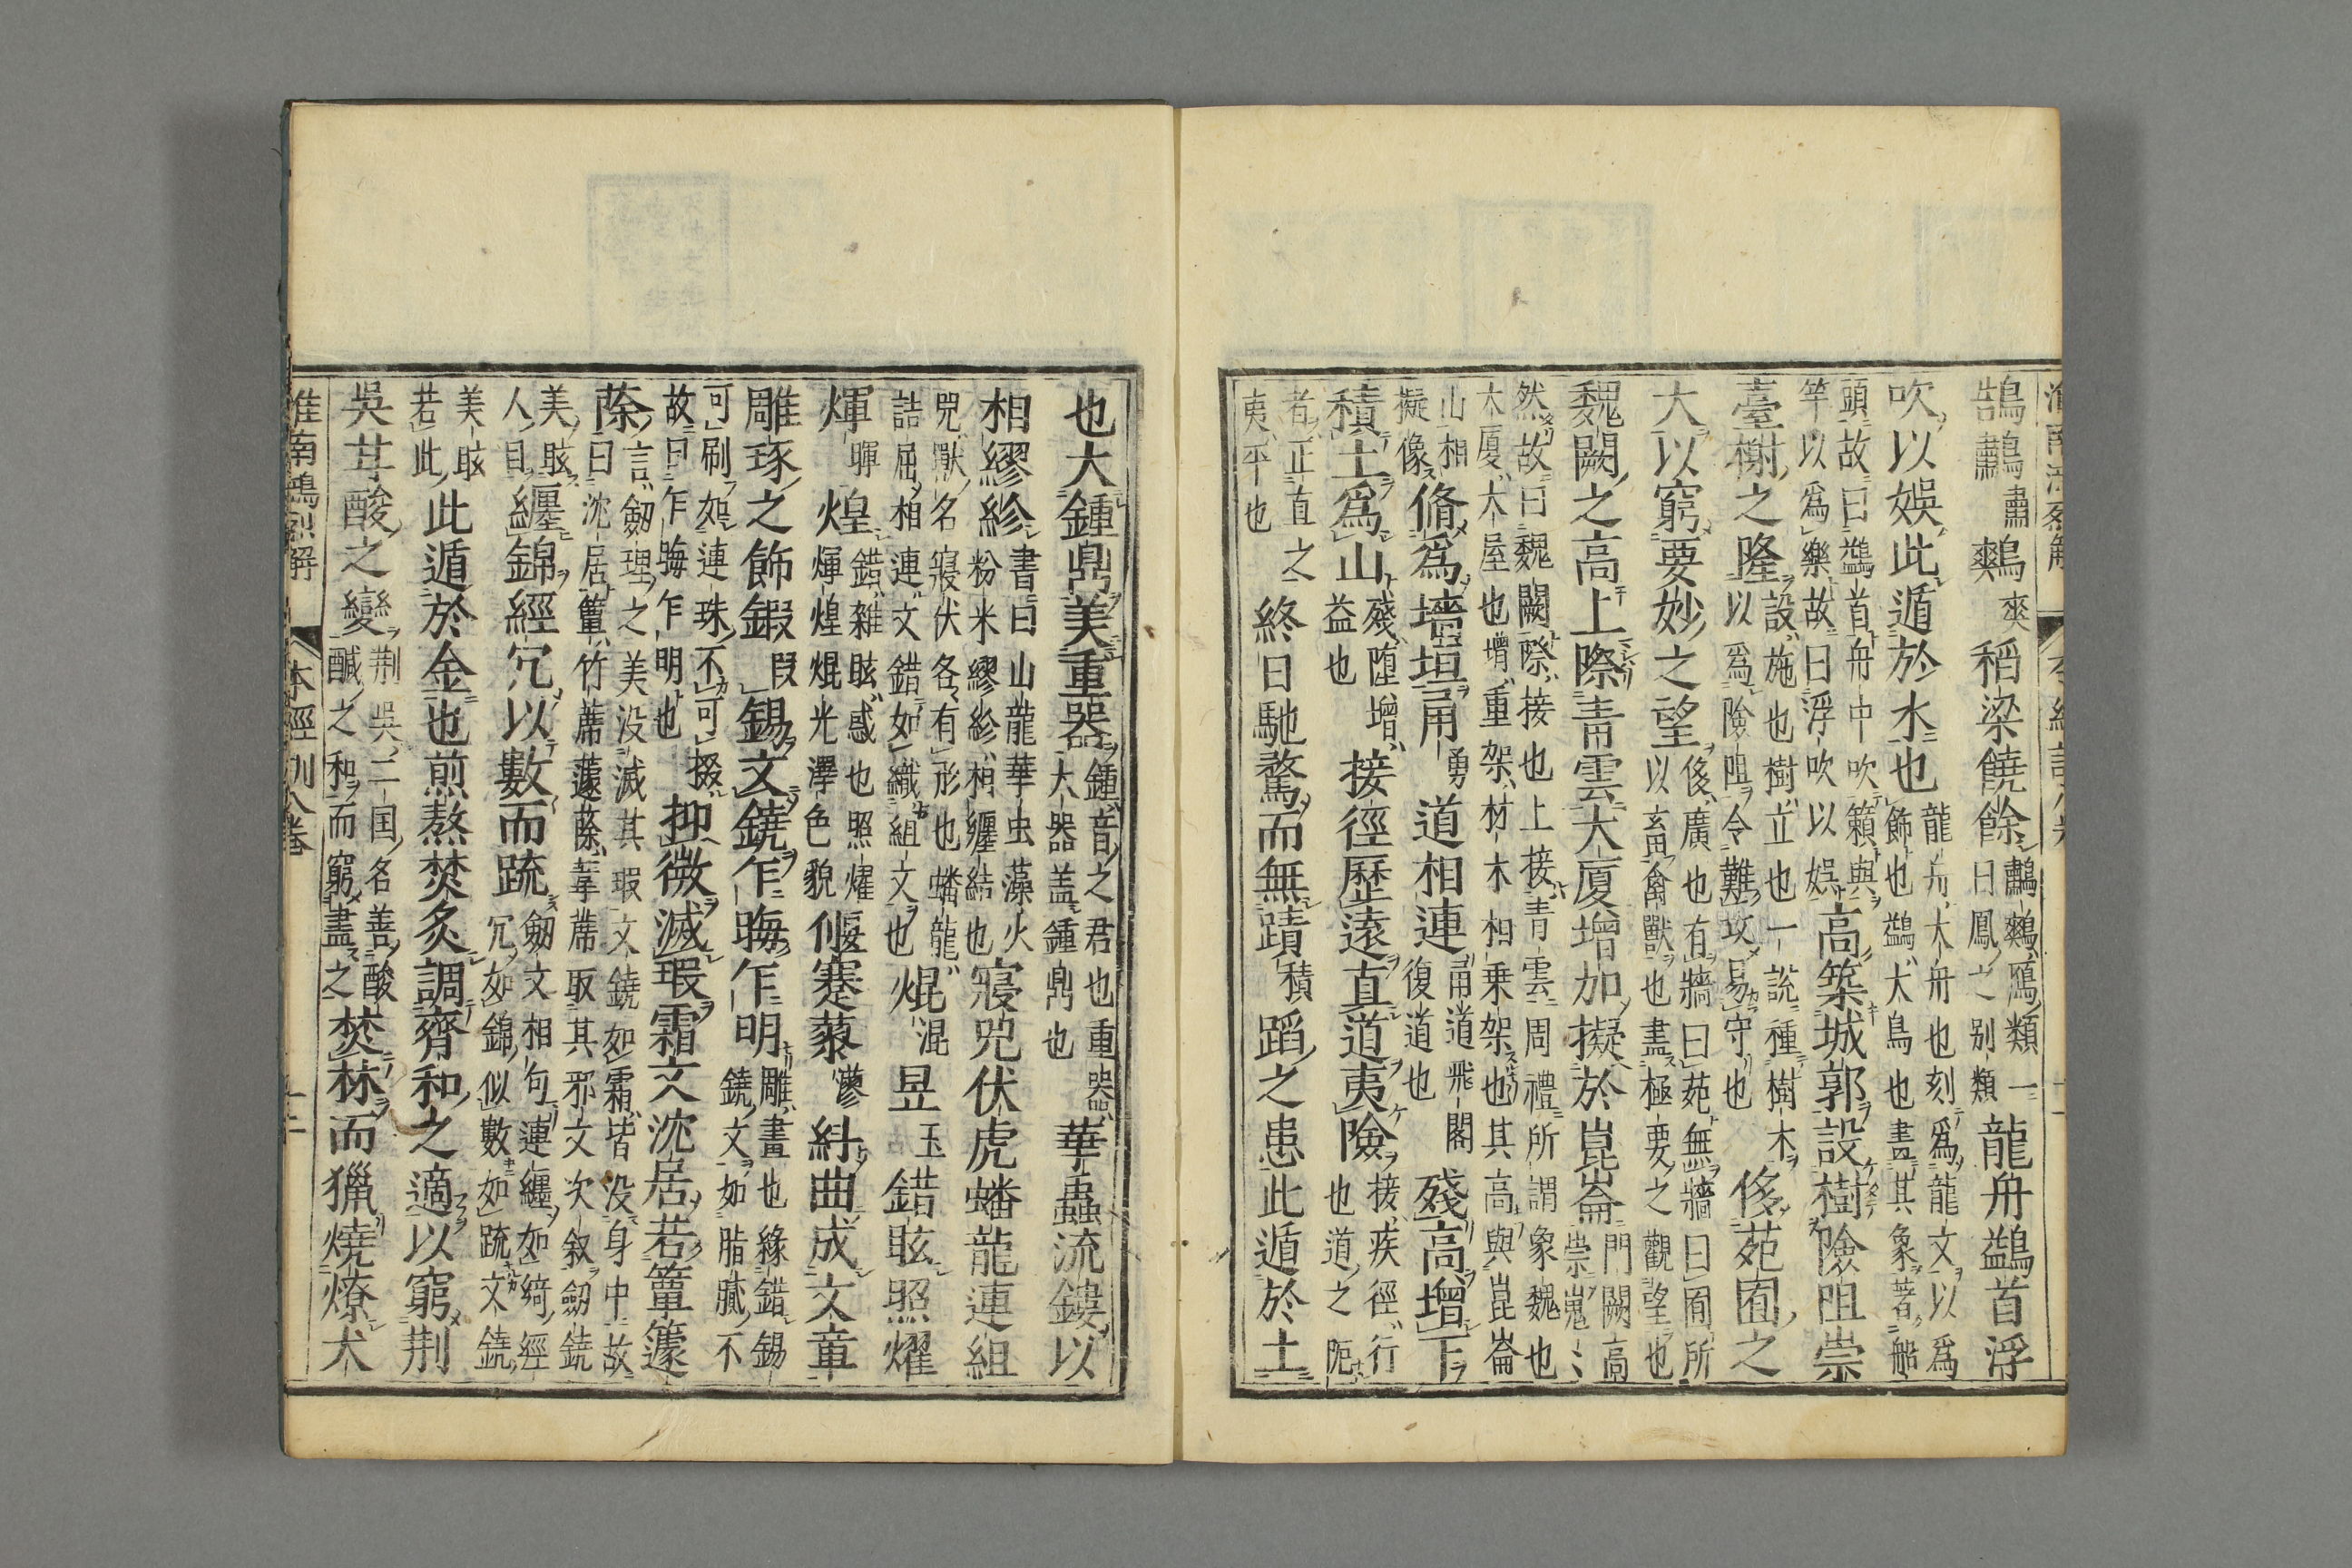 鵠鷫肅鷞爽稻梁饒餘鷫鷞鴈類一曰鳳之别類龍舟鷁首浮
吹以娛此遁於水也龍舟大舟也刻爲龍文以爲飾也鷁大鳥也畫其象著船
頭故曰鷁首舟中吹籟與竿以爲樂故曰浮吹以娯高築城郭設樹險阻崇
臺榭之隆設施也樹立也一說種樹木以爲險阻令難攻易守也侈苑囿之
大以窮要妙之望侈廣也有牆曰苑無牆曰囿所以玄畜禽獸也盡極要之觀望也
魏闕之高上際青雲大廈增加擬於崑崙門闕高崇嵬〻
然故曰魏闕際接也上接青雲周禮所謂象魏也大廈大屋也增重架材木相乗架也其高與崑崙
山相擬像脩爲墻垣甬勇道相連甬道飛閣復道也殘高增下
積土爲山殘墮增益也接徑歷遠直道夷險接疾徑行也道之阨
者正直之夷平也終日馳騖而無蹟積蹈之患此遁於土
也大鍾鼎美重器鍾音之君也重器大器盖鍾鼎也華蟲流鏤以
相繆紾書曰山龍華虫藻火粉米繆紾相纏結也寢兕伏虎蟠龍連組
兕獸名寢伏各有形也蟠龍詰屈相連文錯如織組文也焜混昱玉錯眩照耀
煇暉煌錯雜眩惑也照燿煇煌焜光澤色貌偃蹇蓼蓼糾曲成文章
雕琢之飾鍜叚錫文鐃乍晦乍明雕畫也緣錯錫鐃文如脂膩不
可刷如連珠不可掇故曰乍晦乍明也抑微滅瑕霜文沈居若簟籧
蒢言劒理之美没滅其瑕文鐃如霜皆没身中故曰沈居簟竹蓆籧蒢葦蓆取其邪文次叙劒鐃
美眩人目纏錦經冗以數而疏劒文相句連纏如綺經冗如錦似數如疏文鐃
美眩若此此遁於金也煎熬焚炙調齊和之適以窮荆
吳甘酸之變荆吳二国名善酸醎之和而窮盡之焚林而獵燒燎大
淮南鴻烈解　本經訓八巻